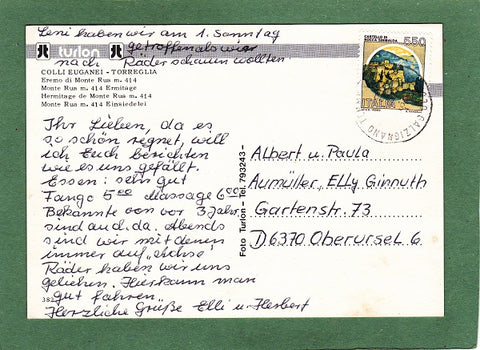 Leni haben wir am 1. Sonntag
getroffen als wir
nach Räder schauen wollten
turlon
COLLI EUGANEI - TORREGLIA
Eremo di Monte Rus m. 414
Monte Rus m. 414 Ermitage
Hermitage de Monte Rus m. 414
Monte Rus m. 414 Einsiedelei
Ihr Lieben, da es
so schön regnet, will
ich Euch berichten
wie es uns gefällt.
Essen: sehr gut
Fango 5 00 Massage 6 00
Bekannte von vor 3 Jahr.
sind auch da. Abends
sind wir mit denen
immer auf "Achse"
Räder haben wir uns
geliehen. Hier kann man
gut fahren.
Herzliche Grüße Elli u. Herbert
382
Foto Turlon - Tel. 793243 -
CASTELLO DI
ROCCA SINIBALDA
550
ITALIA
GALZIGNANO
Albert u. Paula
Aumüller, Elly Ginnuth
Gartenstr. 73
D 6370 Oberursel 6.